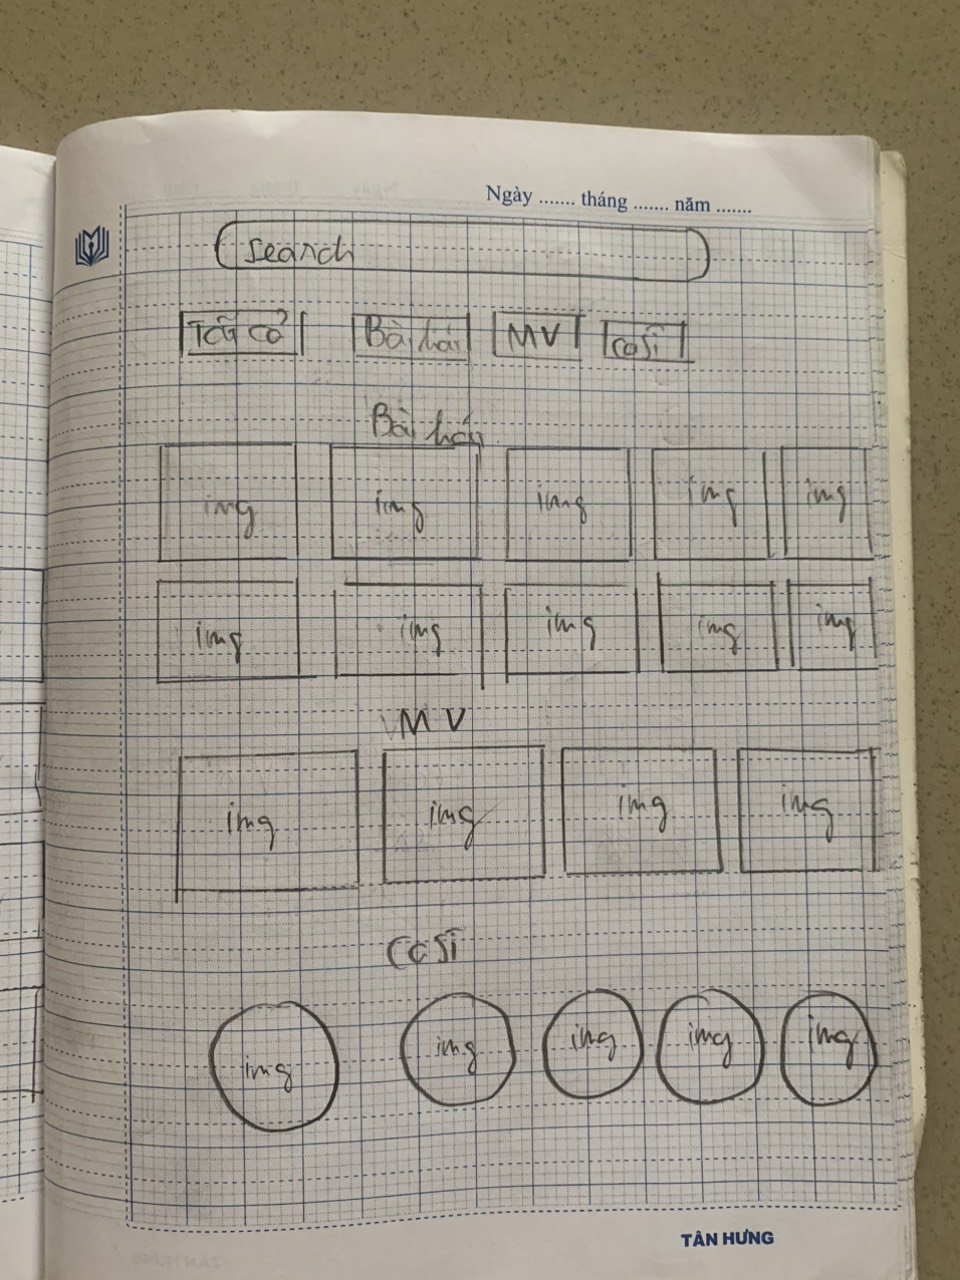 Ngày ....... tháng ....... năm .......
search
Tất cả Bài hát MV Ca Sĩ
Bài hát
img img img img img
img img img img img
MV
img img img img
Ca Sĩ
img img img img img
TÂN HƯNG